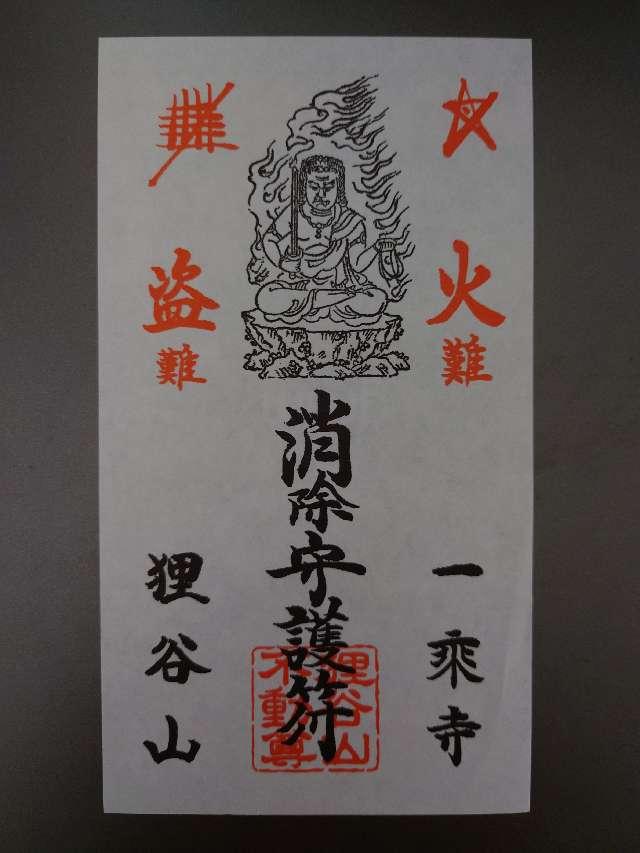 火難
盗難
消除守護符
一乗寺
狸谷山
狸谷山
不動尊